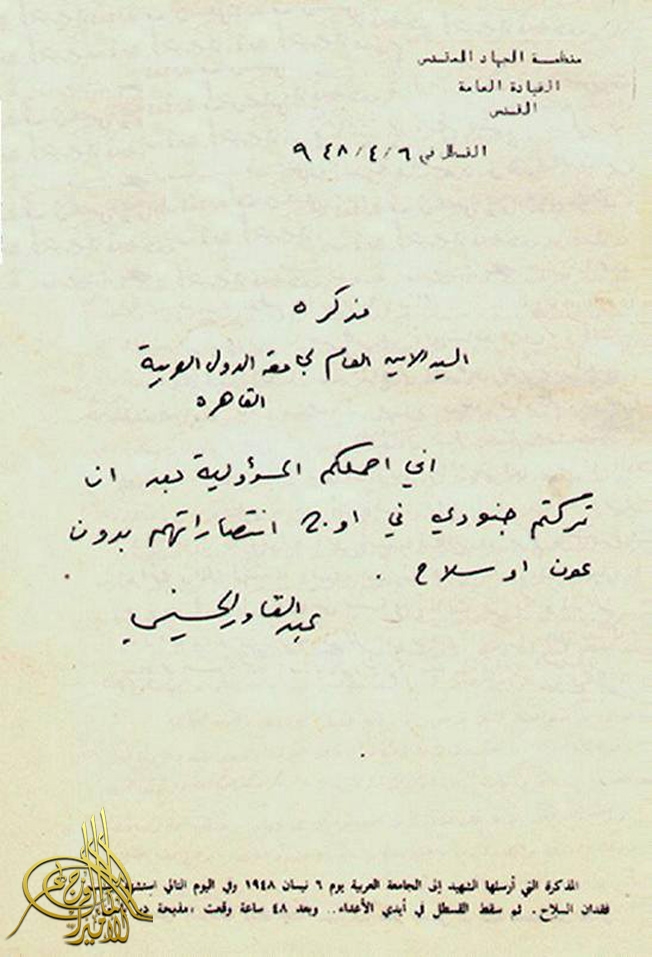 منظمة الجهاد المقدس
القيادة العامة
القدس
القدس في ٩٤٨/٤/٦
مذكره
السيد الامين العام لجامعة الدول العربية
القاهره
اني احملكم المسؤولية بعد ان
تركتم جنودي في اوج انتصاراتهم بدون
عون او سلاح .
عبد القادر الحسيني
المذكرة التي أرسلها الشهيد إلى الجامعة العربية يوم ٦ نيسان ١٩٤٨ وفي اليوم التالي
فقدان السلاح . ثم سقط القسطل في أيدي الأعداء .. وبعد ٤٨ ساعة وقعت ، مذبحة